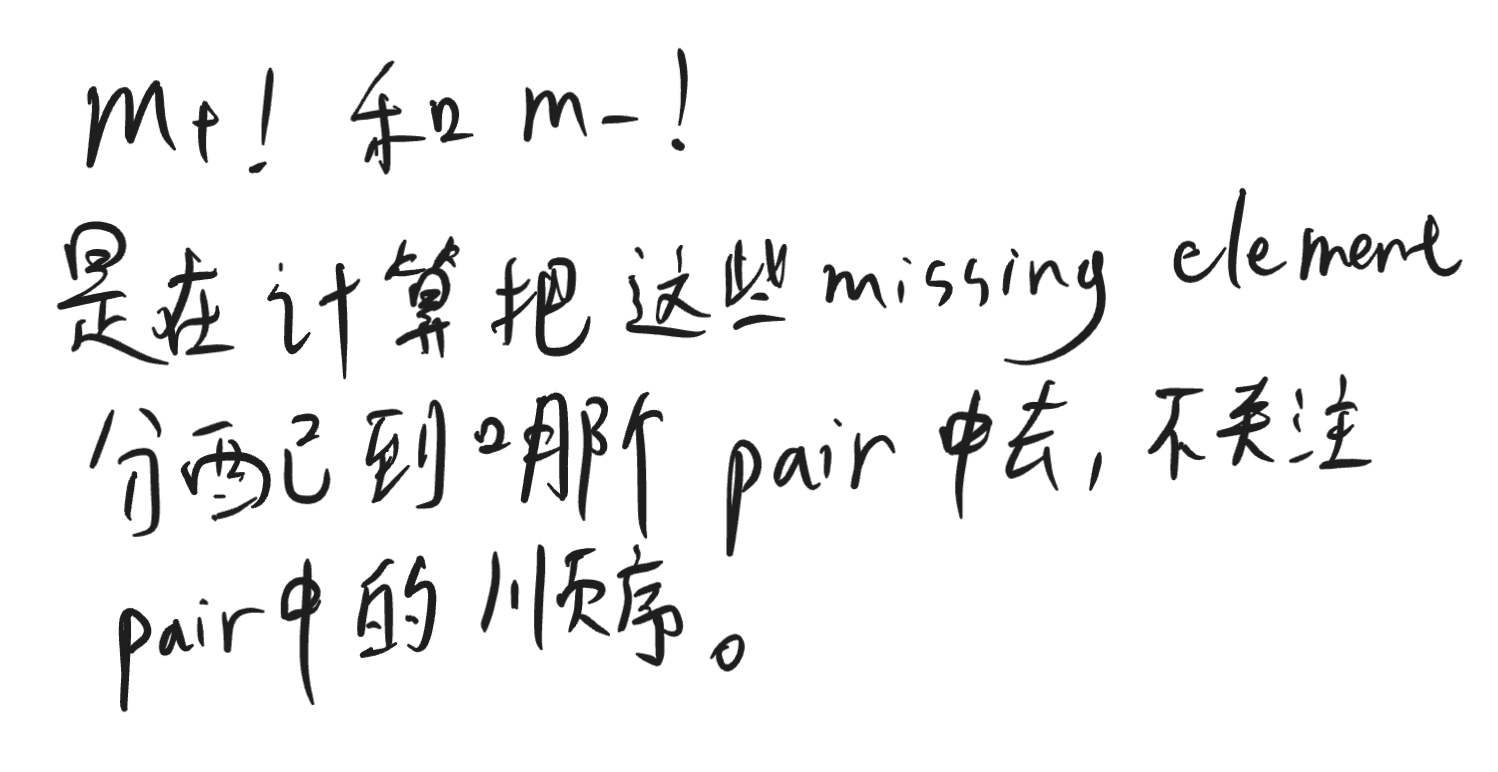 m+! 和 m-!
是在计算把这些missing element
分配到哪个 pair 中去, 不关注
pair中的顺序。